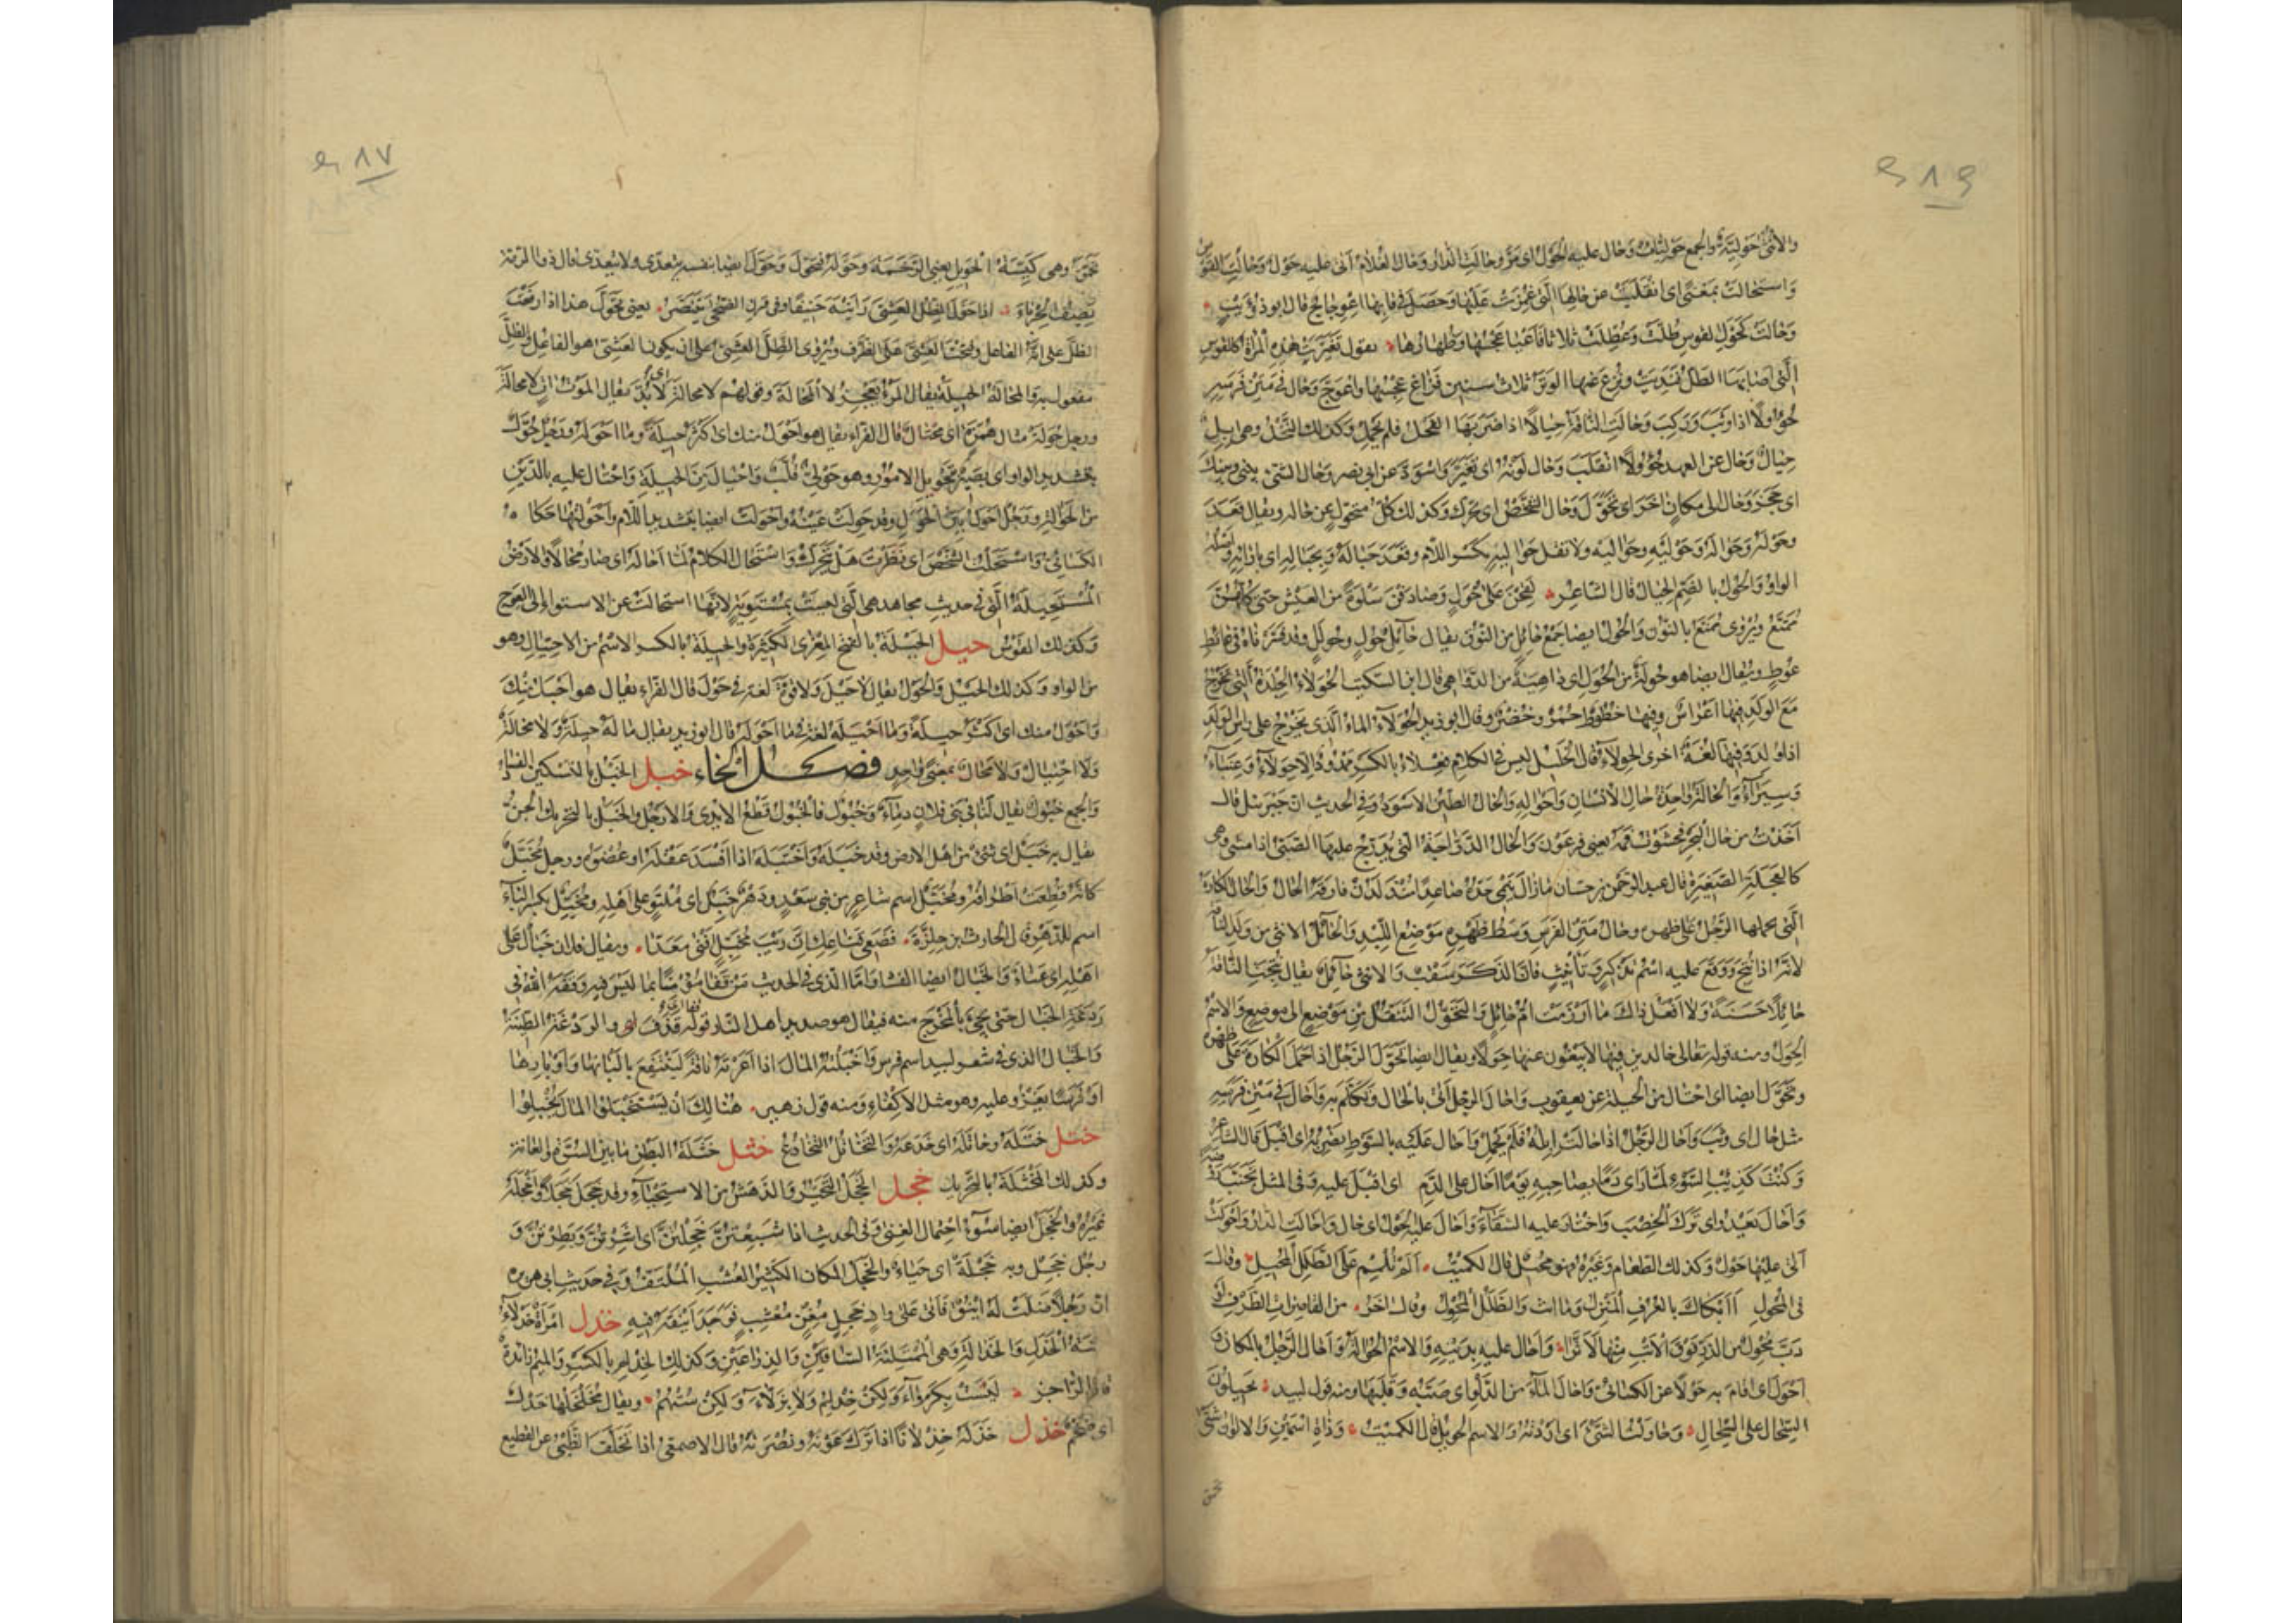 والأنثى حَوْلِيّة والجمع حَوْلِيّات وحال عليه الحول اى مرّ وحالت الدار وحال الغلام اتى عليه حول وحالت القوس
واستحالت بمعنًى اى انقلبت عن حالها التى غُمِزَت عليها وحصل فى قابها اعوجاج قال ابو ذؤيب
وحالت كحول القوس طُلّت وعُطِّلت ثلاثا فاعيا عجسها وظهارها يقول تغيرت هذه المرأة كالقوس
التى اصابها الطل فنديت ونزع عنها الوتر ثلاث سنين فزاغ عجسها واعوجّ وحال فى متن فرسه
حؤولا اذا وثب وركب وحالت الناقة حيالا اذا ضربها الفحل فلم تحمل وكذلك النخل وهى ابل
حيال وحال عن العهد حؤولا انقلب وحال لونه اى تغير واسودّ عن ابى نصر وحال الشئ بينى وبينك
اى حجز وحال الى مكان اخر اى تحوّل وحال الشخص اى تحرك وكذلك كل متحول عن حاله ويقال قعد
حوله وحواله وحوليه وحواليه ولا تقل حواليه بكسر اللام وقعد حياله وبحياله اى بازائه واصله
الواو والحول بالضم الحيال قال الشاعر لقحن على حول وصادفن سلوة من العيش حتى كلهن
ممتع ويروى ممنع بالنون والحول ايضا جمع حائل من النوق يقال حائل حول وحولل وقد فسرناه فى عائط
عوط ويقال ايضا هو حولة من الحول اى داهية من الدواهى قال ابن السكيت الحولاء الجلدة التى تخرج
مع الولد فيها اغراس وفيها خطوط حمر وخضر وقال ابو زيد الحولاء الماء الذى يخرج على راس الولد
اذا ولد وفيها لغة اخرى الحولاء قال الخليل ليس فى الكلام فعلاء بالكسر ممدود الا حولاء وعنباء
وسيراء والحالة واحدة حال الانسان واحواله والحال الطين الاسود وفى الحديث ان جبرئيل قال
اخذت من حال البحر فحشوت فمه يعنى فرعون والحال الدراجة التى يدرج عليها الصبى اذا مشى وهى
كالعجلة الصغيرة قال عبد الرحمن بن حسان ما زال ينمى جده صاعدا منذ لدن فارقه الحال والحال الكارة
التى يحملها الرجل على ظهره وحال متن الفرس وسط ظهره موضع اللبد والحائل الانثى من ولد الناقة
لانه اذا نتج ووقع عليه اسم تذكير وتأنيث فان الذكر سقب والانثى حائل يقال نتجت الناقة
حائلا حسنة ولا افعل ذاك ما ارزمت ام حائل والتحول التنقل من موضع الى موضع والاسم
الحول ومنه قوله تعالى خالدين فيها لا يبغون عنها حولا ويقال ايضا تحول الرجل اذا حمل الكارة على ظهره
وتحول ايضا اى احتال من الحيلة عن يعقوب واحال الرجل اتى بالمحال وتكلم به واحال فى متن فرسه
مثل حال اى وثب واحال الرجل اذا حالت ابله فلم تحمل واحال عليه بالسوط يضربه اى اقبل قال الشاعر
وكنت كذئب السوء لما راى دما بصاحبه يوما احال على الدم اى اقبل عليه وفى المثل تجنب روضة
واحال يعدو اى ترك الخصب واختار عليه الشقاء واحال عليه الحول اى حال واحالت الدار واحولت
اتى عليها حول وكذلك الطعام وغيره فهو محيل قال الكميت الم تلمم على الطلل المحيل وقال
فى المحول أأبكاك بالعرف المنزل وما انت والطلل المحول وقال اخر من القاصرات الطرف لو
دب محول من الذر فوق الاتب منها لأثرا واحال عليه بدينه والاسم الحوالة واحال الرجل بالمكان و
احول اى اقام به حولا عن الكسائى واحال الماء من الدلو اى صبه وقلبها ومنه قول لبيد يحيلون
السجال على السجال وحاولت الشئ اى اردته والاسم الحويل قال الكميت وذات اسمين والالوان شتى
تحمق
تحمق وهى كيسة الحويل يعنى الرخمة وحوله فتحول وحول ايضا بنفسه يتعدى ولا يتعدى قال ذو الرمة
يصف الحرباء اذا حول الظل العشى رايته حنيفا وفى قرن الضحى يتنصر يعنى تحول هذا اذا رفعت
الظل على انه الفاعل وفتحت العشى على الظرف ويروى الظل العشى على ان يكون العشى هو الفاعل والظل
مفعول به والمحالة الحيلة يقال المرء يعجز لا المحالة وقولهم لا محالة اى لا بد يقال الموت ات لا محالة
ورجل حولة مثال همزة اى محتال قال الفراء يقال هو احول منك اى اكثر حيلة وما احوله ورجل حول
بتشديد الواو اى بصير بتحويل الامور وهو حولى قلب واحتال من الحيلة واحتال عليه بالدين
من الحوالة ورجل احول بين الحول وقد حولت عينه واحولت ايضا بتشديد اللام واحولتها حكاه
الكسائى واستحلت الشخص اى نظرت هل يتحرك واستحال الكلام لما احاله اى صار محالا والارض
المستحيلة التى فى حديث مجاهد هى التى ليست بمستوية لانها استحالت عن الاستواء الى العوج
وكذلك القوس حيل الحيلة بالفتح المعزى الكثيرة والحيلة بالكسر الاسم من الاحتيال وهو
من الواو وكذلك الحيل والحول يقال لا حيل ولا قوة لغة فى حول قال الفراء يقال هو احيل منك
واحول منك اى اكثر حيلة وما احيله لغة فى ما احوله قال ابو زيد يقال ما له حيلة ولا محالة
ولا احتيال ولا محال بمعنى واحد فصل الخاء خبل الخبل بالتسكين الفساد
والجمع خبول يقال لنا فى بنى فلان دماء وخبول فالخبول قطع الايدى والارجل والخبل بالتحريك الجن
يقال به خبل اى شئ من اهل الارض وقد خبله واختبله اذا افسد عقله او عضوه ورجل مخبل
كانه قطعت اطرافه ومخبل اسم شاعر من بنى سعد ودهر خبل اى ملتو على اهله ومخبل بكسر الباء
اسم للدهر قال الحارث بن حلزة فضعى قناعك ان ريب مخبل افنى معدا ويقال فلان خبال على
اهله اى عناء والخبال ايضا الفساد واما الذى فى الحديث من قفا مؤمنا بما ليس فيه وقفه الله فى
ردغة الخبال حتى يجئ بالمخرج منه فيقال هو صديد اهل النار قوله قفا اى قذف والردغة الطينة
والخبال الذى فى شعر لبيد اسم فرس واخبلته المال اذا اعرته ناقة لينتفع بالبانها واوبارها
او فرسا يغزو عليه وهو مثل الاكفاء ومنه قول زهير هنالك ان يستخبلوا المال يخبلوا
ختل ختله وخاتله اى خدعه والتخاتل التخادع خثل خثلة البطن ما بين السرة والعانة
وكذلك الخثلة بالتحريك خجل الخجل التحير والدهش من الاستحياء وقد خجل خجلا واخجله
غيره والخجل ايضا سوء احتمال الغنى وفى الحديث اذا شبعتن خجلتن اى اشرتن وبطرتن و
رجل خجل وبه خجلة اى حياء والخجل المكان الكثير العشب الملتف وفى حديث ابى هريرة
ان رجلا ضلت له اينق فاتى على واد خجل مغن معشب فوجد اينقه فيه خدل امرأة خدلاء
بينة الخدل والخدالة وهى الممتلئة الساقين والذراعين وكذلك الخدلم بالكسر والميم زائدة
قال الراجز ليست بكرواء ولكن خدلم ولا بزلاء ولكن ستهم ويقال مخلخلها خدل
اى ضخم خذل خذله خذلانا اذا ترك عونه ونصرته قال الاصمعى اذا تخلف الظبى عن القطيع